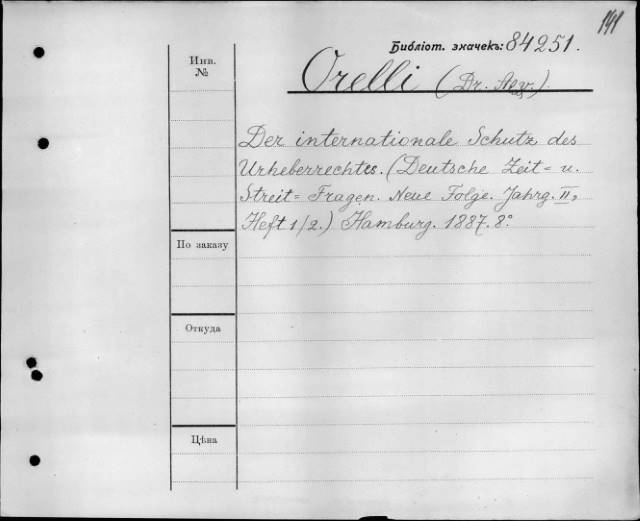 191
Библіот. значекъ: 84251.
Инв.
№
Orelli (Dr. Aloy.)
Der internationale Schutz des
Urheberrechtes. (Deutsche Zeit= u.
Streit= Fragen. Neue Folge. Jahrg. II,
Heft 1/2.) Hamburg. 1887. 8°.
По заказу
Откуда
Цѣна